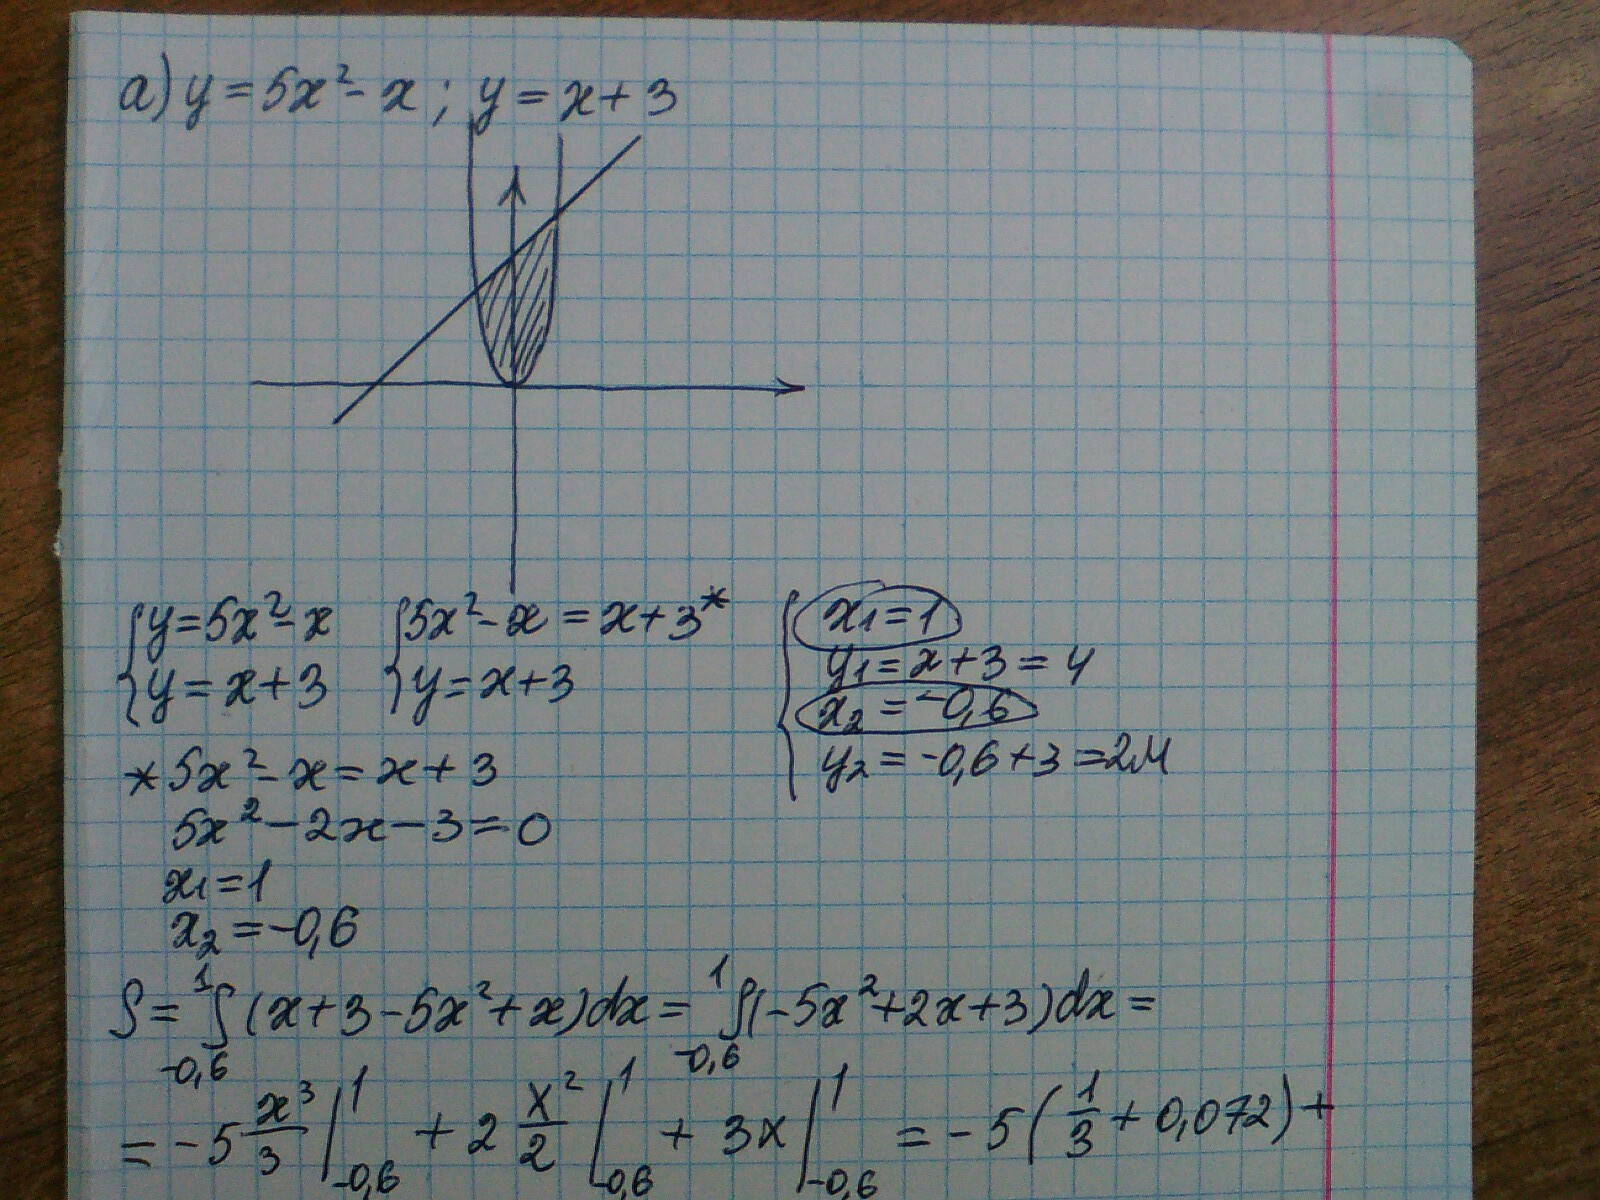 а) y = 5x² - x ; y = x + 3
{ y = 5x² - x { 5x² - x = x + 3 * { x₁ = 1
y = x + 3 y = x + 3 y₁ = x + 3 = 4
x₂ = -0,6
y₂ = -0,6 + 3 = 2,4
* 5x² - x = x + 3
5x² - 2x - 3 = 0
x₁ = 1
x₂ = -0,6
S = ¹∫₋₀,₆ (x + 3 - 5x² + x) dx = ¹∫₋₀,₆ (-5x² + 2x + 3) dx =
= -5 x³/3 |¹₋₀,₆ + 2 x²/2 |¹₋₀,₆ + 3x |¹₋₀,₆ = -5 (1/3 + 0,072) +